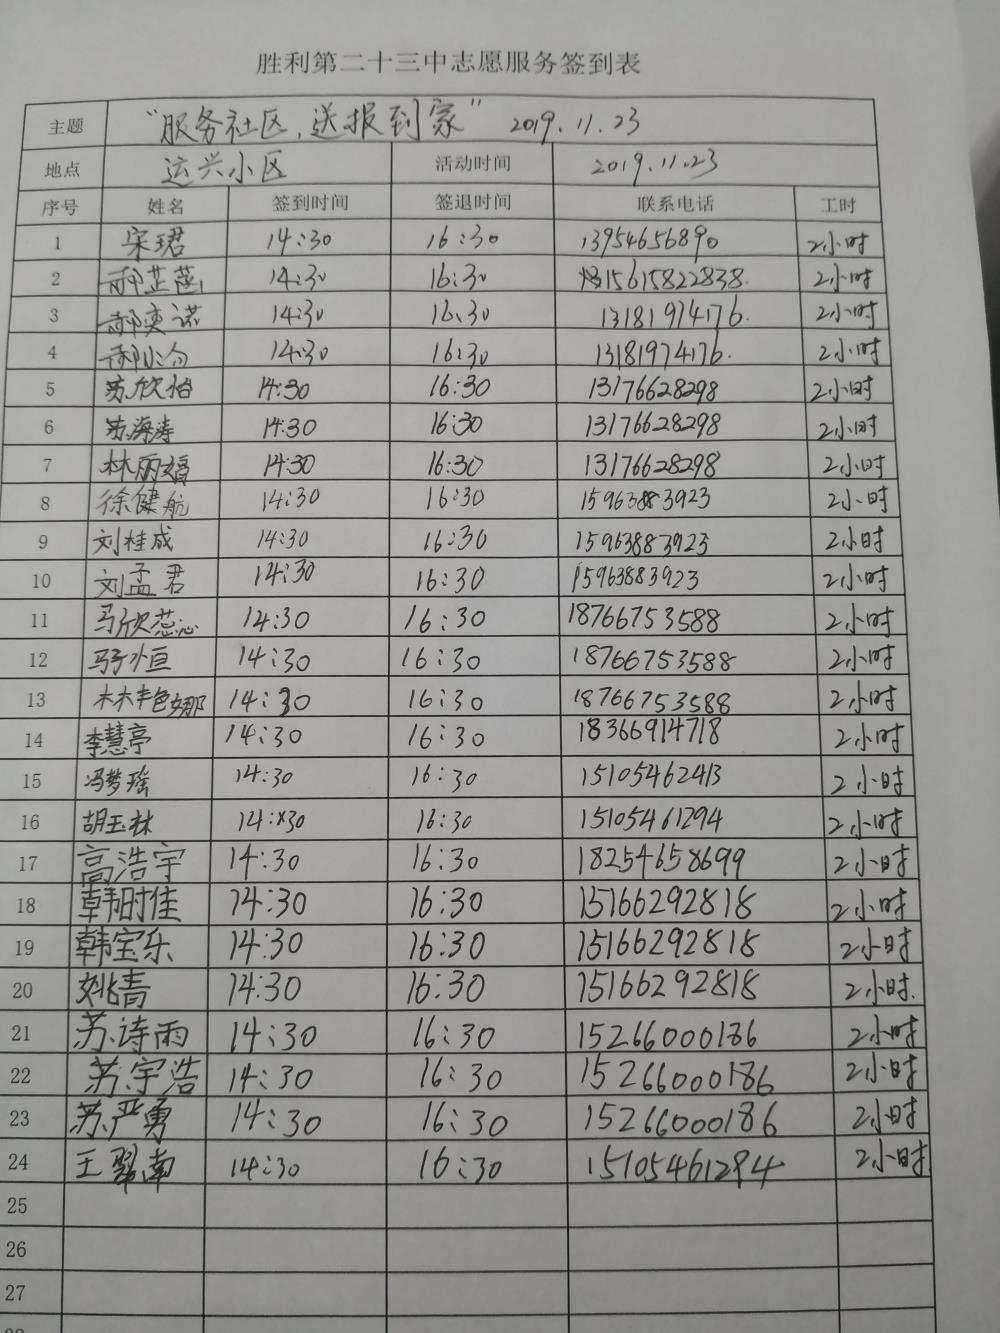 胜利第二十三中志愿服务签到表
主题 “服务社区，送报到家” 2019.11.23
地点 运兴小区 活动时间 2019.11.23
序号 姓名 签到时间 签退时间 联系电话 工时
1 宋珺 14:30 16:30 13954656890 2小时
2 郝芷菡 14:30 16:30 15615822838. 2小时
3 郝奕诺 14:30 16:30 13181974176. 2小时
4 14:30 16:30 13181974176. 2小时
5 苏欣怡 14:30 16:30 13176628298 2小时
6 苏海涛 14:30 16:30 13176628298 2小时
7 林丽娟 14:30 16:30 13176628298 2小时
8 徐健航 14:30 16:30 15963883923 2小时
9 刘桂成 14:30 16:30 15963883923 2小时
10 刘孟君 14:30 16:30 15963883923 2小时
11 马欣蕊 14:30 16:30 18766753588 2小时
12 14:30 16:30 18766753588 2小时
13 14:30 16:30 18766753588 2小时
14 李慧亭 14:30 16:30 18366914718 2小时
15 冯梦瑶 14:30 16:30 15105462413 2小时
16 胡玉林 14:30 16:30 15105461294 2小时
17 高浩宇 14:30 16:30 18254658699 2小时
18 韩时佳 14:30 16:30 15166292818 2小时
19 韩宝乐 14:30 16:30 15166292818 2小时
20 姚青 14:30 16:30 15166292818 2小时.
21 苏诗雨 14:30 16:30 15266000186 2小时
22 苏宇浩 14:30 16:30 15266000186 2小时
23 苏严勇 14:30 16:30 15266000186 2小时
24 王翠南 14:30 16:30 15105461294 2小时
25
26
27